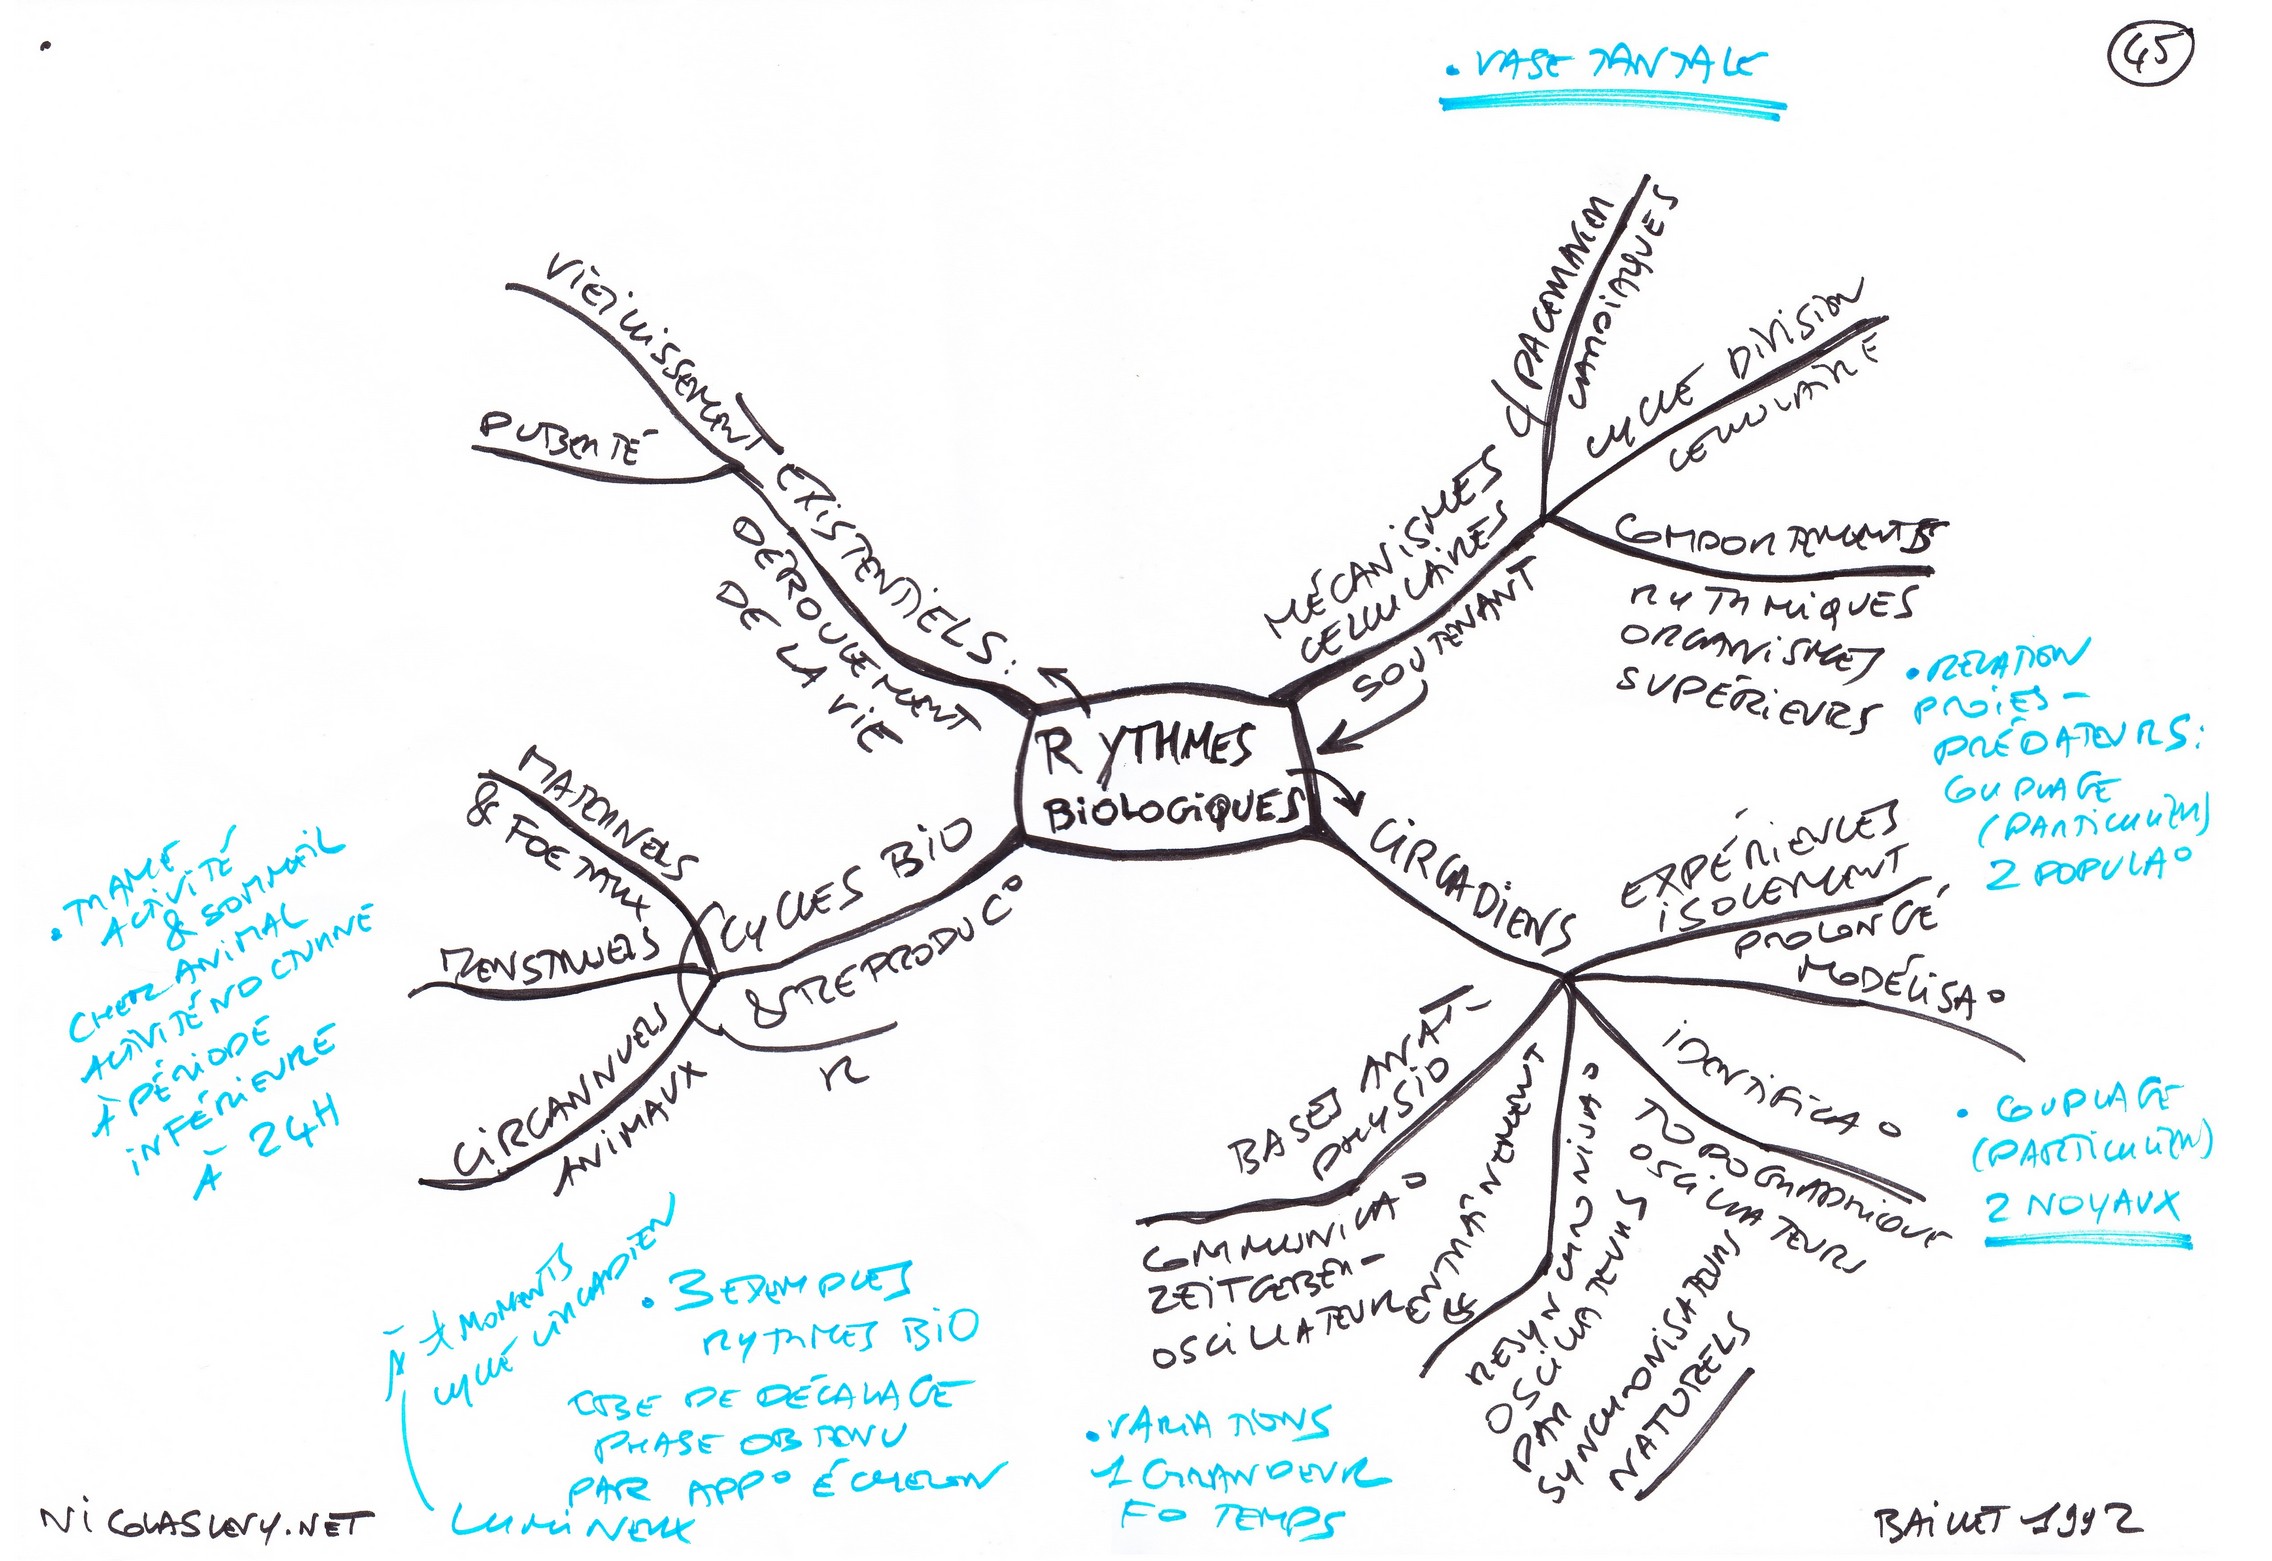 • VASE TANTALE
45
VIEILLISSEMENT
PUBERTÉ
EXISTENTIELS :
DÉROULEMENT
DE LA VIE
MÉCANISMES
CELLULAIRES
SOUTENANT
PACEMAKER
CARDIAQUES
CYCLE DIVISION
CELLULAIRE
COMPORTEMENTS
RYTHMIQUES
ORGANISMES
SUPÉRIEURS
• RELATION
PROIES -
PRÉDATEURS :
COUPLAGE
(PARTICULIER)
2 POPULA°
RYTHMES
BIOLOGIQUES
CYCLES BIO
& REPRODUC°
R
MATERNELS
& FOETAUX
MENSTRUELS
CIRCANNUELS
ANIMAUX
• TRAME
ACTIVITÉ
& SOMMEIL
CHEZ ANIMAL
ACTIVITÉ NOCTURNE
À PÉRIODE
INFÉRIEURE
À 24H
CIRCADIENS
EXPÉRIENCES
ISOLEMENT
PROLONGÉ
MODÉLISA°
IDENTIFICA°
TOPOGRAPHIQUE
OSCILLATEURS
• COUPLAGE
(PARTICULIER)
2 NOYAUX
BASES ANAT-
PHYSIO
COMMUNICA°
ZEITGEBER-
OSCILLATEUR
ENTRAÎNEMENT
&
RESYNCHRONISA°
OSCILLATEURS
PAR
SYNCHRONISATEURS
NATURELS
À ≠ MOMENTS
CYCLE CIRCADIEN
• 3 EXEMPLES
RYTHMES BIO
CBE DE DÉCALAGE
PHASE OBTENU
PAR APP° ÉCHELON
LUMINEUX
• VARIATIONS
1 GRANDEUR
FO TEMPS
NICOLASLEVY.NET
BAILLET 1992